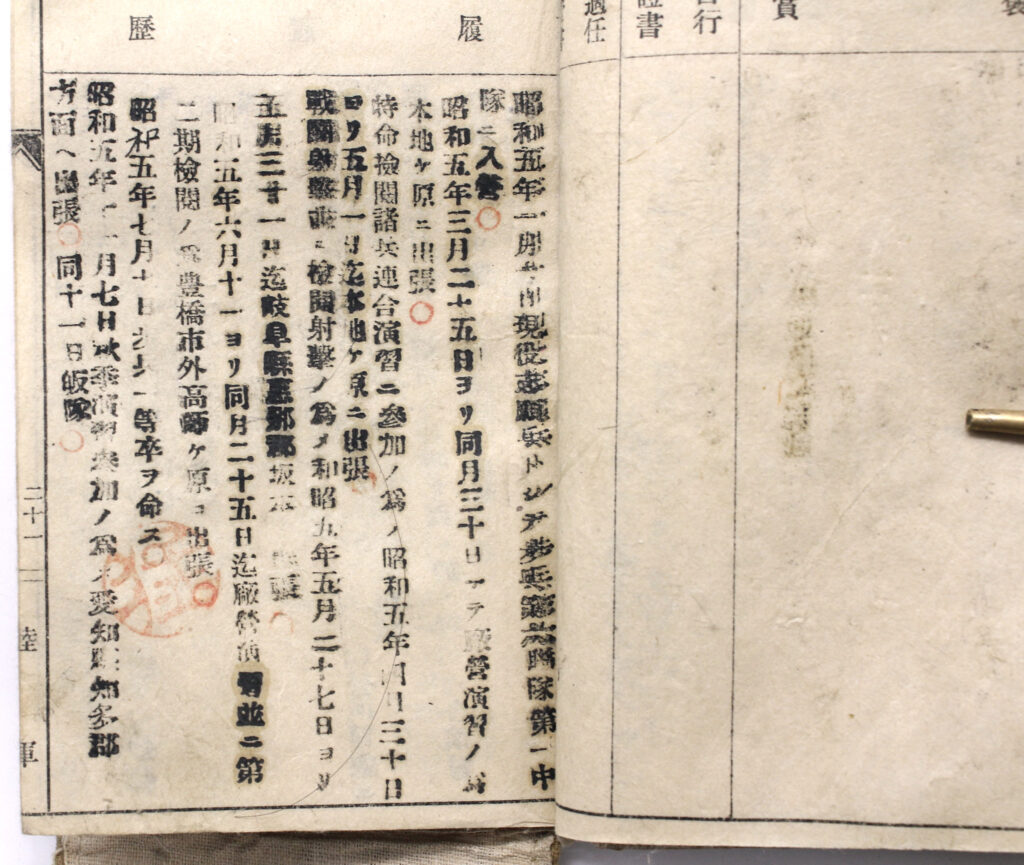 賞
行
證書
適任
履歷
昭和五年一月十日現役志願兵トシテ歩兵第六聯隊第一中
隊ニ入營
昭和五年三月二十五日ヨリ同月三十日マデ廠營演習ノ爲
本地ケ原ニ出張
特命檢閲諸兵連合演習ニ參加ノ爲メ昭和五年四月三十日
ヨリ五月一日迄本地ケ原ニ出張
戰鬪射擊並ニ檢閲射擊ノ爲メ和昭五年五月二十七日ヨリ
五月三十一日迄岐阜縣惠那郡坂本 出張
昭和五年六月十一ヨリ同月二十五日迄廠營演習並ニ第
二期檢閲ノ爲豊橋市外高師ケ原ニ出張
昭和五年七月十日歩兵一等卒ヲ命ス
昭和五年十一月七日秋季演習參加ノ爲メ愛知縣知多郡
方面ヘ出張 同十一日皈隊
二十一
陸軍